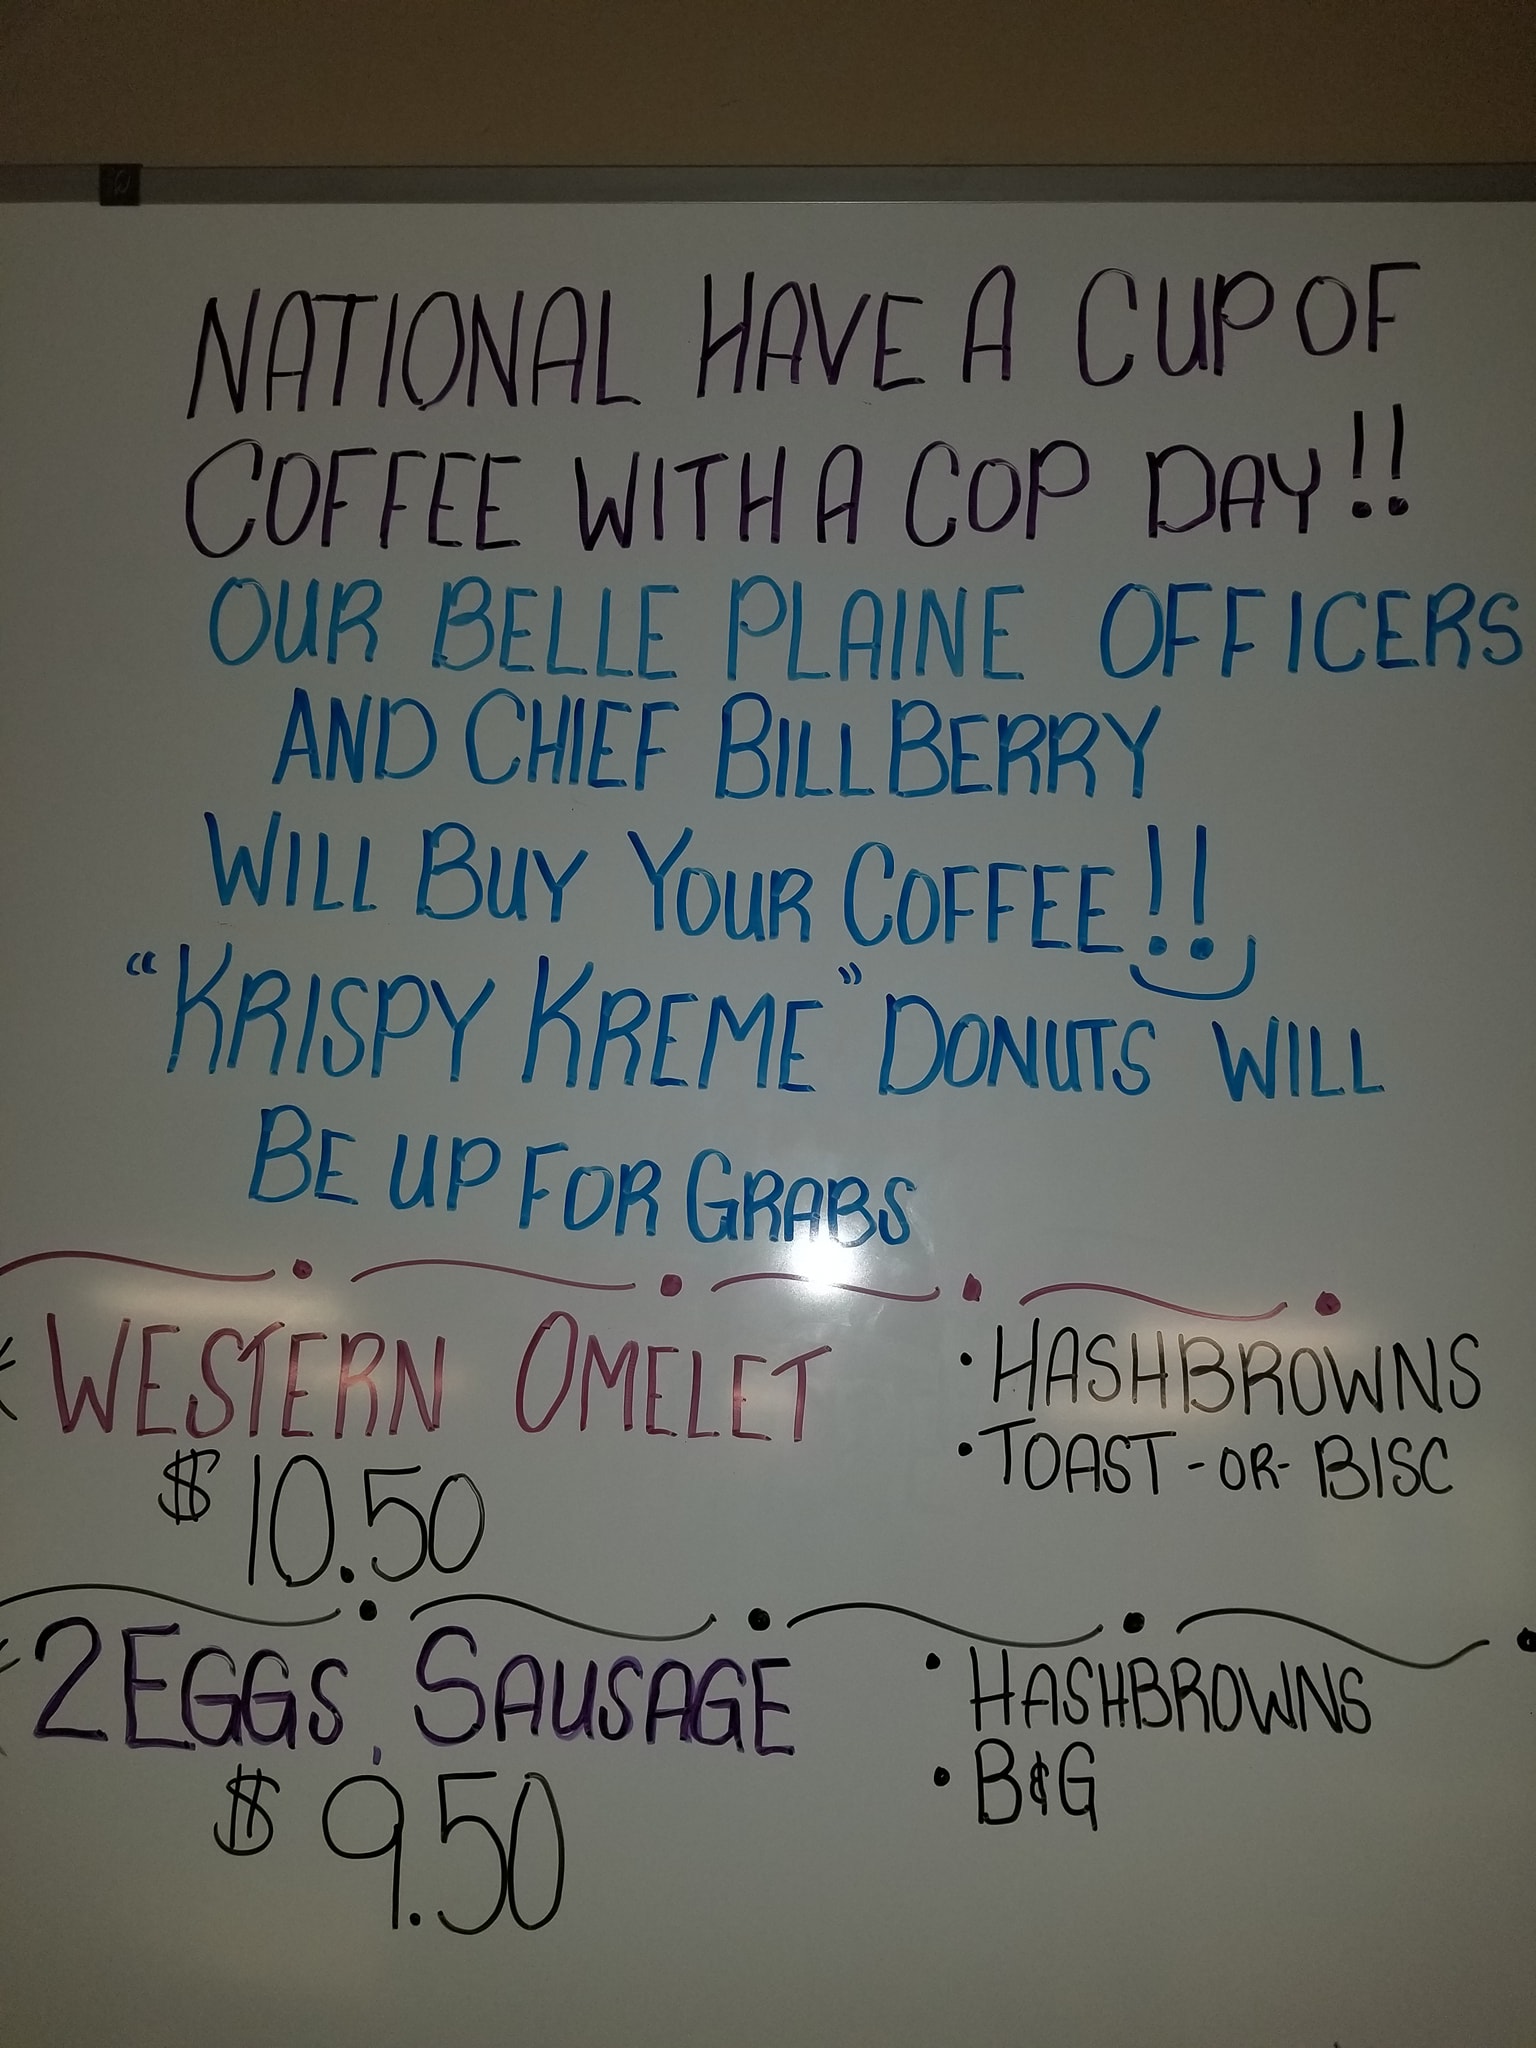 NATIONAL HAVE A CUP OF
COFFEE WITH A COP DAY!!
OUR BELLE PLAINE OFFICERS
AND CHIEF BILL BERRY
WILL BUY YOUR COFFEE!!
"KRISPY KREME" DONUTS WILL
BE UP FOR GRABS
WESTERN OMELET
$10.50
• HASHBROWNS
• TOAST -OR- BISC
2 EGGS, SAUSAGE
$9.50
• HASHBROWNS
• B&G